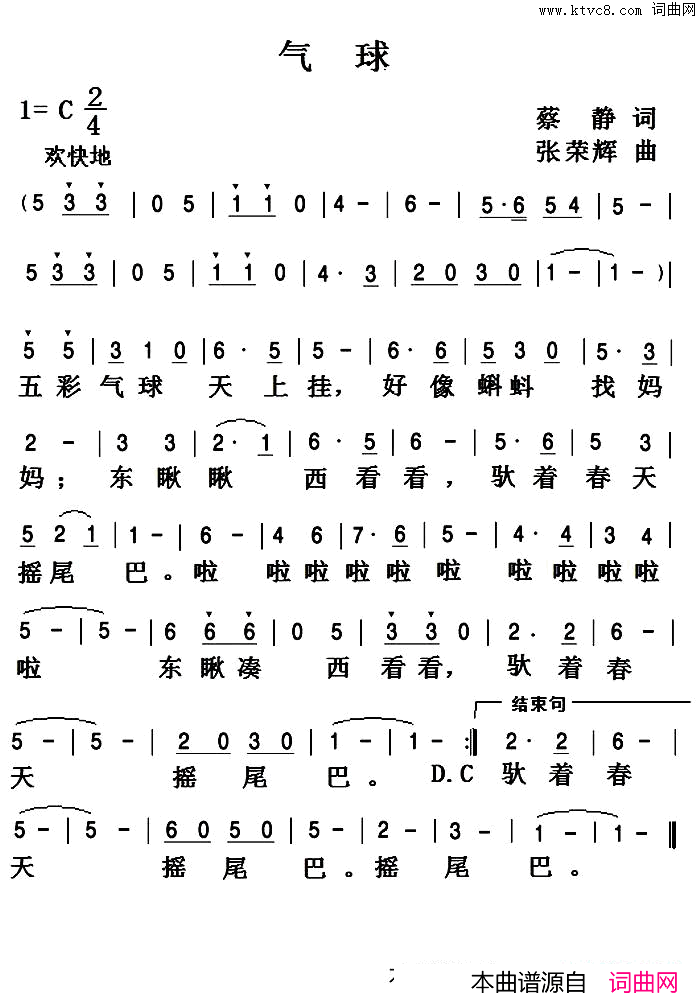 www.ktvc8.com 词曲网
气 球
1= C 2/4
蔡 静 词
欢快地
张荣辉 曲
( 5 3 3 | 0 5 | 1 1 0 | 4 - | 6 - | 5 · 6 5 4 | 5 - |
5 3 3 | 0 5 | 1 1 0 | 4 · 3 | 2 0 3 0 | 1 - | 1 - ) |
5 5 | 3 1 0 | 6 · 5 | 5 - | 6 · 6 | 5 3 0 | 5 · 3 |
五彩气球 天上挂， 好像蝌蚪 找妈
2 - | 3 3 | 2 · 1 | 6 · 5 | 6 - | 5 · 6 | 5 3 |
妈； 东瞅瞅 西看看， 驮着春天
5 2 1 | 1 - | 6 - | 4 6 | 7 · 6 | 5 - | 4 · 4 | 3 4 |
摇尾 巴。啦 啦啦啦啦 啦 啦啦啦啦
5 - | 5 - | 6 6 6 | 0 5 | 3 3 0 | 2 · 2 | 6 - |
啦 东瞅凑 西看看， 驮着春
结束句
5 - | 5 - | 2 0 3 0 | 1 - | 1 - :| 2 · 2 | 6 - |
天 摇尾巴。 D.C 驮着春
5 - | 5 - | 6 0 5 0 | 5 - | 2 - | 3 - | 1 - | 1 - ||
天 摇尾 巴。摇 尾 巴。
本曲谱源自 词曲网